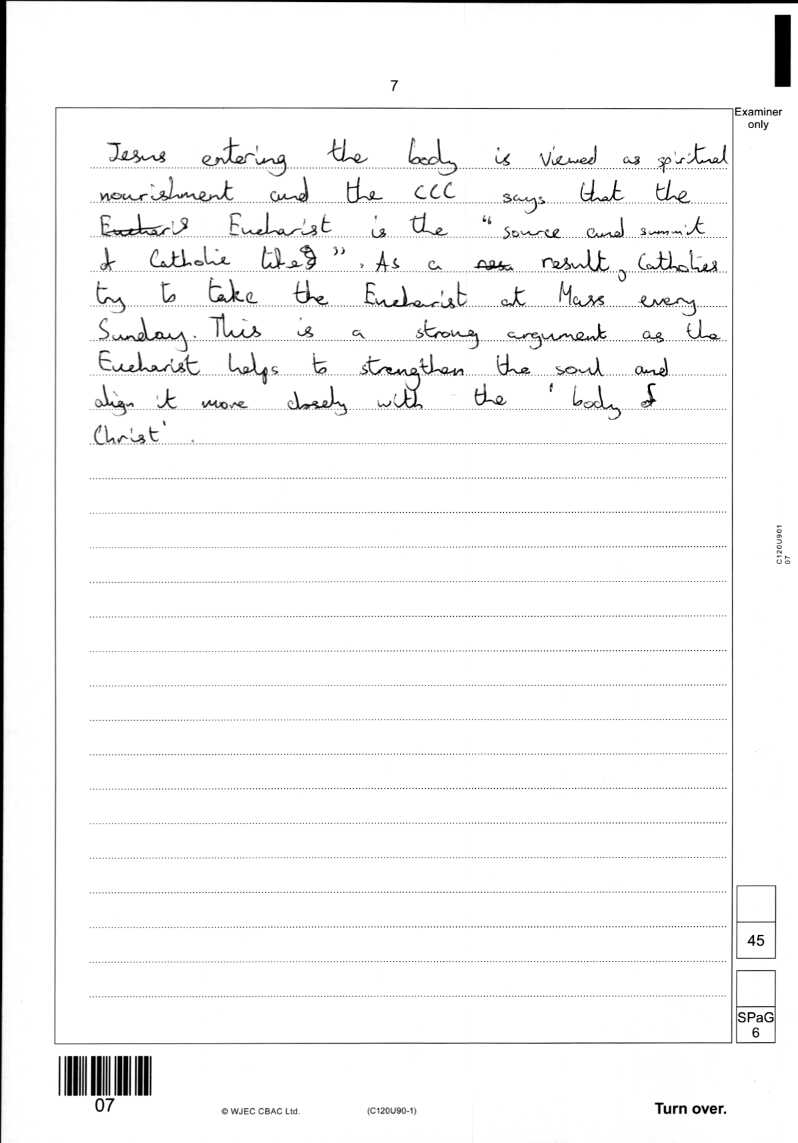 7
Examiner
only
Jesus entering the body is viewed as spiritual
nourishment and the CCC says that the
Eucharis Eucharist is the "source and summit
of Catholic life". As a result, Catholics
try to take the Eucharist at Mass every
Sunday. This is a strong argument as the
Eucharist helps to strengthen the soul and
align it more closely with the 'body of
Christ'.
C120U901
07
45
SPaG
6
07
© WJEC CBAC Ltd.
(C120U90-1)
Turn over.